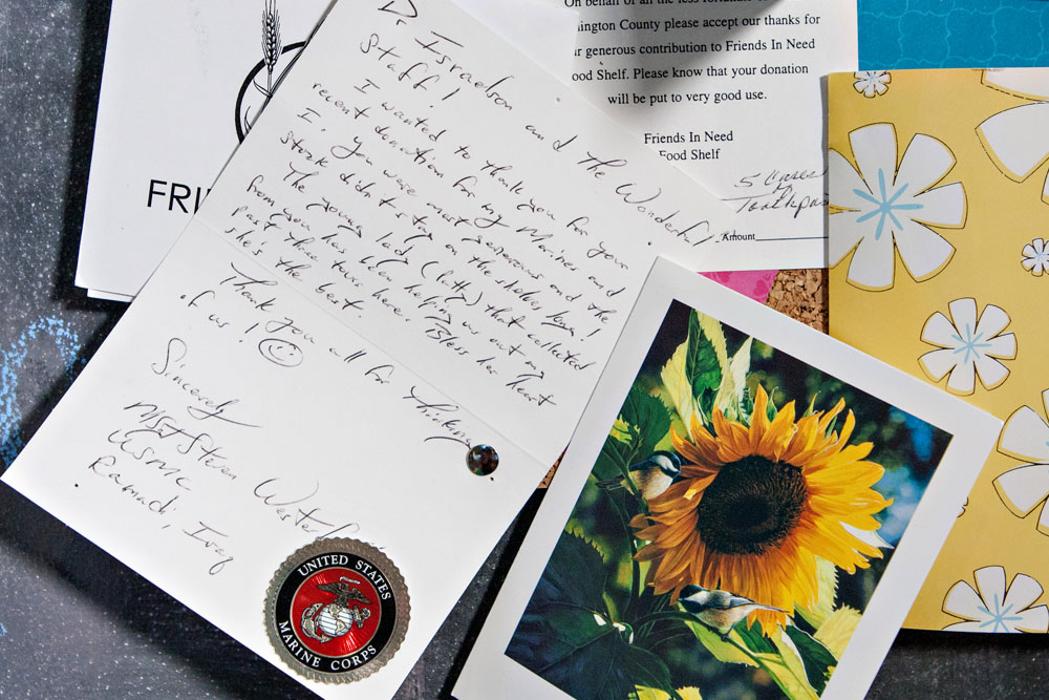 Dr Israelson and the Wonderful
Staff!
I wanted to thank you for your
recent donation for my Marines and
I. You were most generous and the
stock didn't stay on the shelves long!
The young lady ( ) that collected
from you has been helping us out my
past three tours here. Bless her heart
she's the best.
Thank you all for thinking
of us!
Sincerely
MSgt Steven
USMC
Ramadi, Iraq
UNITED STATES
MARINE CORPS
FRI
On behalf of all the less
ington County please accept our thanks for
ur generous contribution to Friends In Need
ood Shelf. Please know that your donation
will be put to very good use.
Friends In Need
Food Shelf
5 Cases
Toothpas
Amount